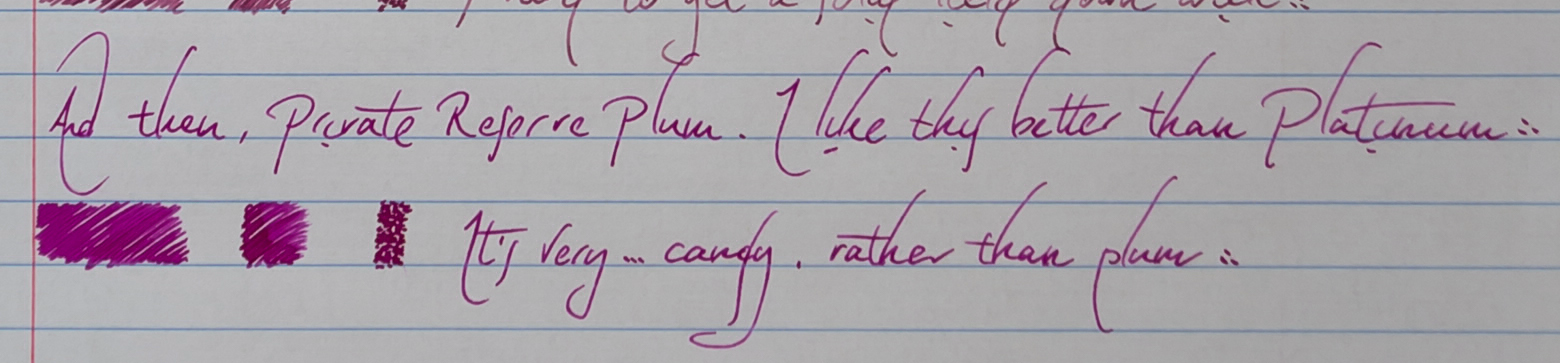 to get a
And then, Private Reserve Plum. I like this better than Platinum :.
It's very... candy, rather than plum :.